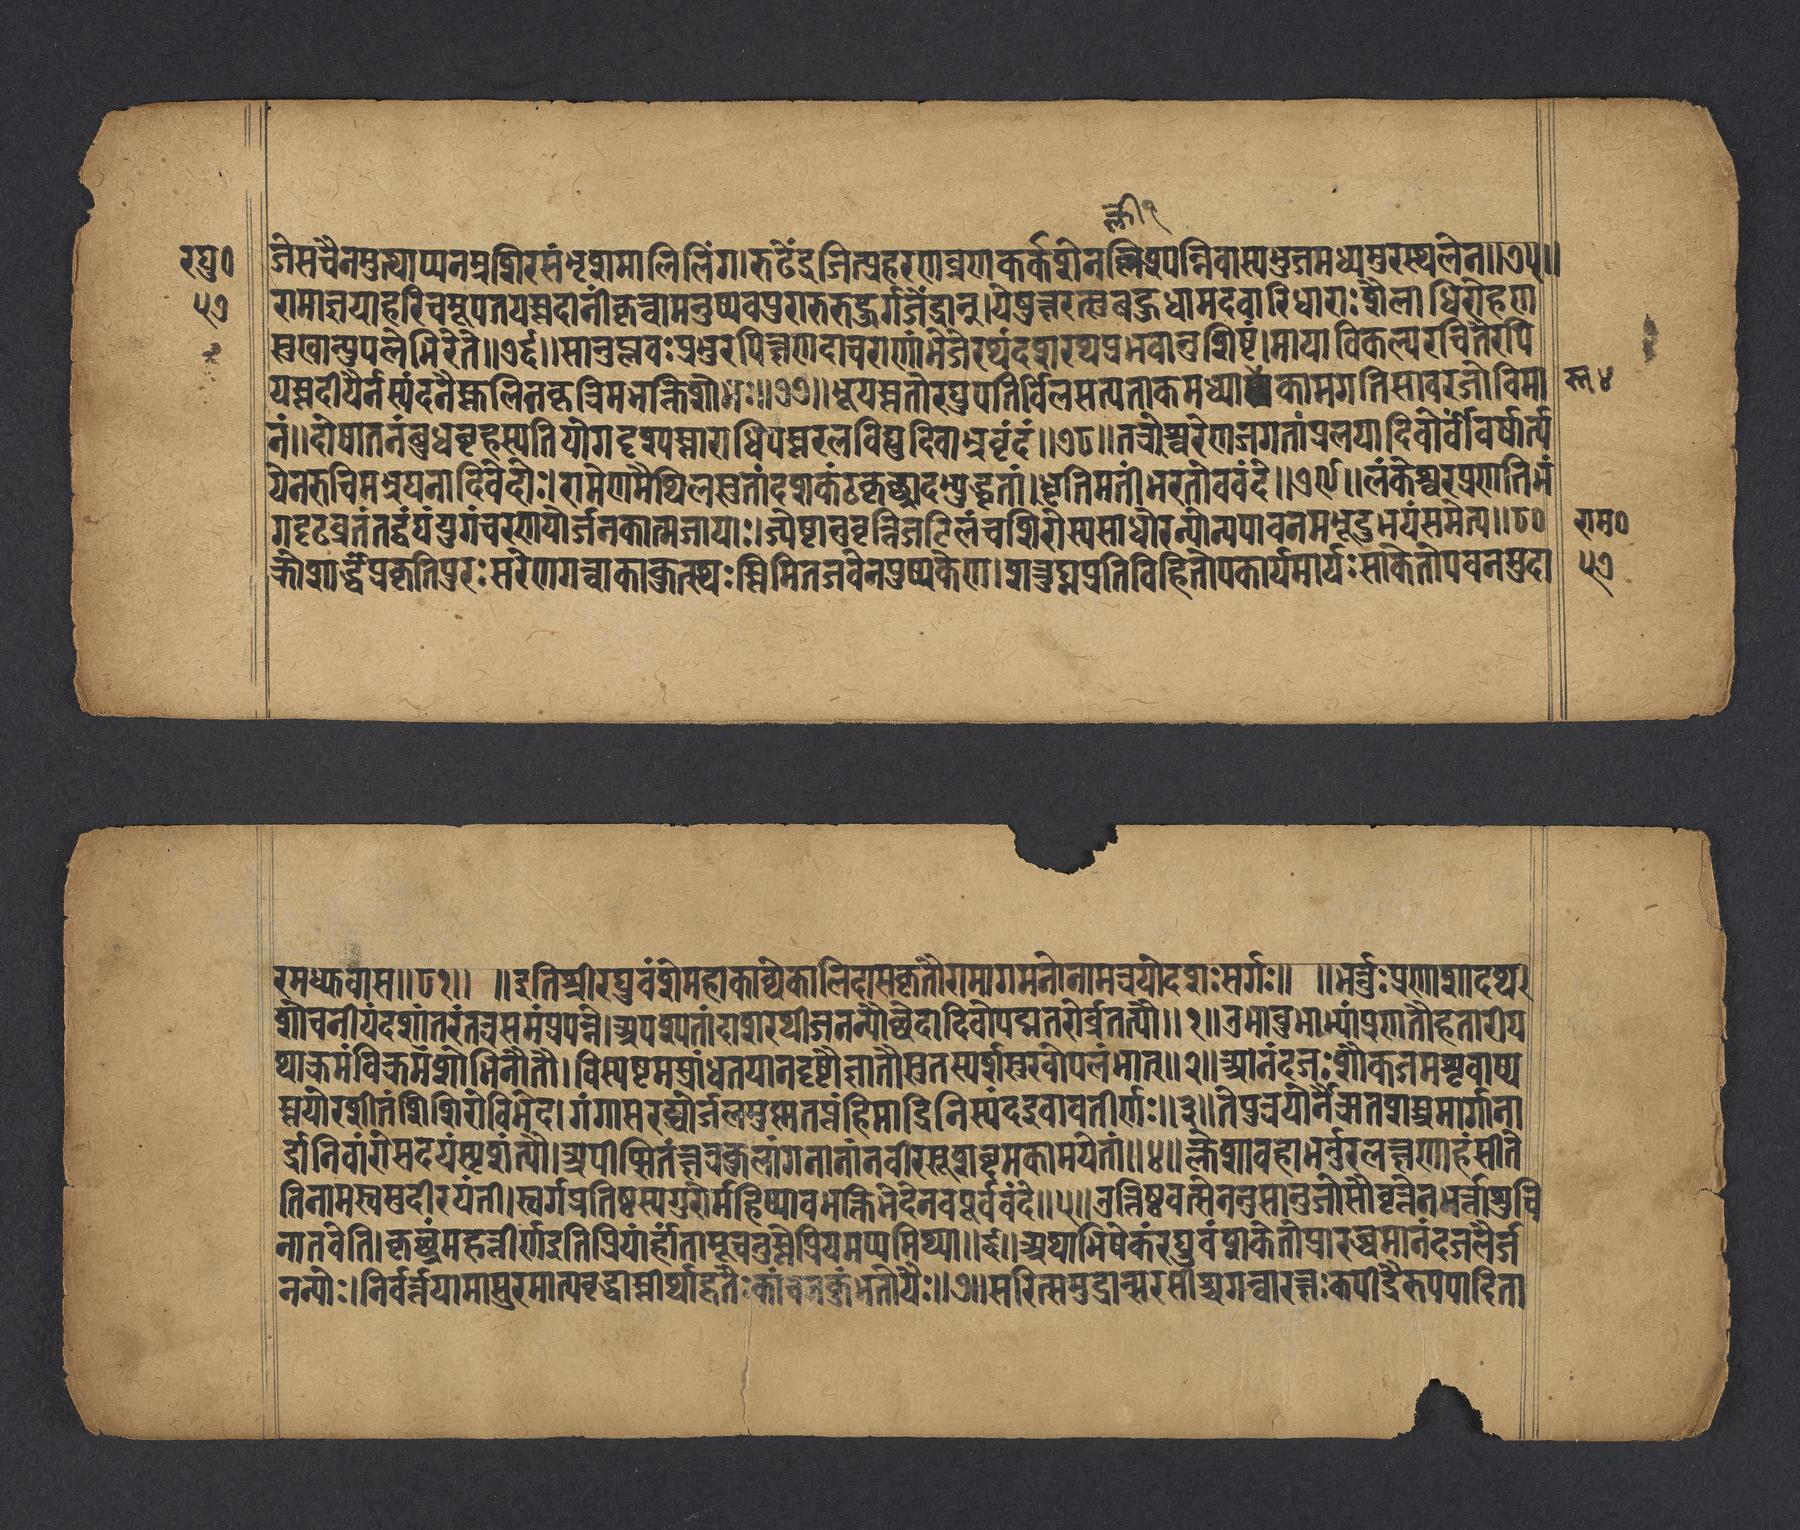 क्ली१
रघु०
५७
जेसचैनमुत्थाप्यनम्रशिरसंभृशमालिलिंग।रुढेंद्रजित्प्रहरणव्रणकर्कशेनक्लिश्यन्निवास्यभुजमध्यमुरस्थलेन॥७५॥
रामाज्ञयाहरिचमूपतयस्तदानींकृत्वामनुष्यवपुरारुरुहुर्गजेंद्रान्।येषुक्षरत्सुबहुधामदवारिधाराःशैलाधिरोहण
सुखान्युपलेभिरेते॥७६॥सानुप्लवःप्रभुरपिक्षणदाचराणांभेजेरथंदशरथप्रभवानुशिष्टं।मायाविकल्परचितैरपि
यस्तदीयैर्नस्यंदनैस्तुलितकृत्रिमभक्तिशोभः॥७७॥भूयस्ततोरघुपतिर्विलसत्पताकमध्यास्तकामगतिसावरजोविमा
स्त४
नं॥दोषातनंबुधबृहस्पतियोगदृश्यस्तारापतिस्तरलविद्युदिवाभ्रवृंदं॥७८॥तत्रेश्वरेणजगतांप्रलयादिवोर्वींवर्षात्य
येनरुचिमभ्रघनादिवेंदोः।रामेणमैथिलसुतांदशकंठकृछ्रादभ्युद्धृतां।धृतिमतींभरतोववंदे॥७९॥लंकेश्वरप्रणतिभं
गदृढव्रतंतद्वंद्यंयुगंचरणयोर्जनकात्मजायाः।ज्येष्ठानुवृत्तिजटिलंचशिरोस्यसाधोरन्योन्यपावनमभूदुभयंसमेत्य॥८०
राम०
क्रोशार्द्धंप्रकृतिपुरःसरेणगत्वाकाकुत्स्थःस्तिमितजवेनपुष्पकेण।शत्रुघ्नप्रतिविहितोपकार्यमार्यःसाकेतोपवनमुदा
५७
रमध्युवास॥८१॥ ॥इतिश्रीरघुवंशेमहाकाव्येकालिदासकृतौरामागमनोनामत्रयोदशःसर्गः॥ ॥भर्त्तुःप्रणाशादथ
शोचनीयंदशांतरंतत्रसमंप्रपन्ने।अपश्यतांदाशरथीजनन्यौछेदादिवोपघ्नतरोर्व्रतत्यौ॥१॥उभावुभाभ्यांप्रणतौहतारीय
थाक्रमंविक्रमशोभिनौतौ।विस्पष्टमस्रांधतयानदृष्टौज्ञातौसुतस्पर्शसुखोपलंभात्॥२॥आनंदजःशोकजमश्रुबाष्प
स्तयोरशीतंशिशिरोबिभेद।गंगासरय्वोर्जलमुष्णतप्तंहिमाद्रिनिस्यंदइवावतीर्णः॥३॥तेपुत्रयोर्नैर्ऋतशस्त्रमार्गाना
र्द्रानिवांगेसदयंस्पृशंत्यौ।अपीप्सितंक्षत्रकुलांगनानांनवीरसूशब्दमकामयेतां॥४॥क्लेशावहाभर्तुरलक्षणाहंसीते
तिनामस्वमुदीरयंती।स्वर्गप्रतिष्ठस्यगुरोर्महिष्यावभक्तिभेदेनवधूर्ववंदे॥५॥उत्तिष्ठवत्सेननुसानुजोसौवृत्तेनभर्त्ताशुचि
नातवेति।कृछ्रंमहत्तीर्णइतिप्रियार्हांतामूचतुस्तेप्रियमप्यमिथ्या॥६॥अथाभिषेकंरघुवंशकेतोप्रारब्धमानंदजलैर्ज
नन्योः।निर्वर्त्तयामासुरमात्यवृद्धास्तीर्थाहृतैःकांचनकुंभतोयैः॥७॥सरित्समुद्रान्सरसीश्चगत्वारक्षःकपींद्रैरुपपादिता